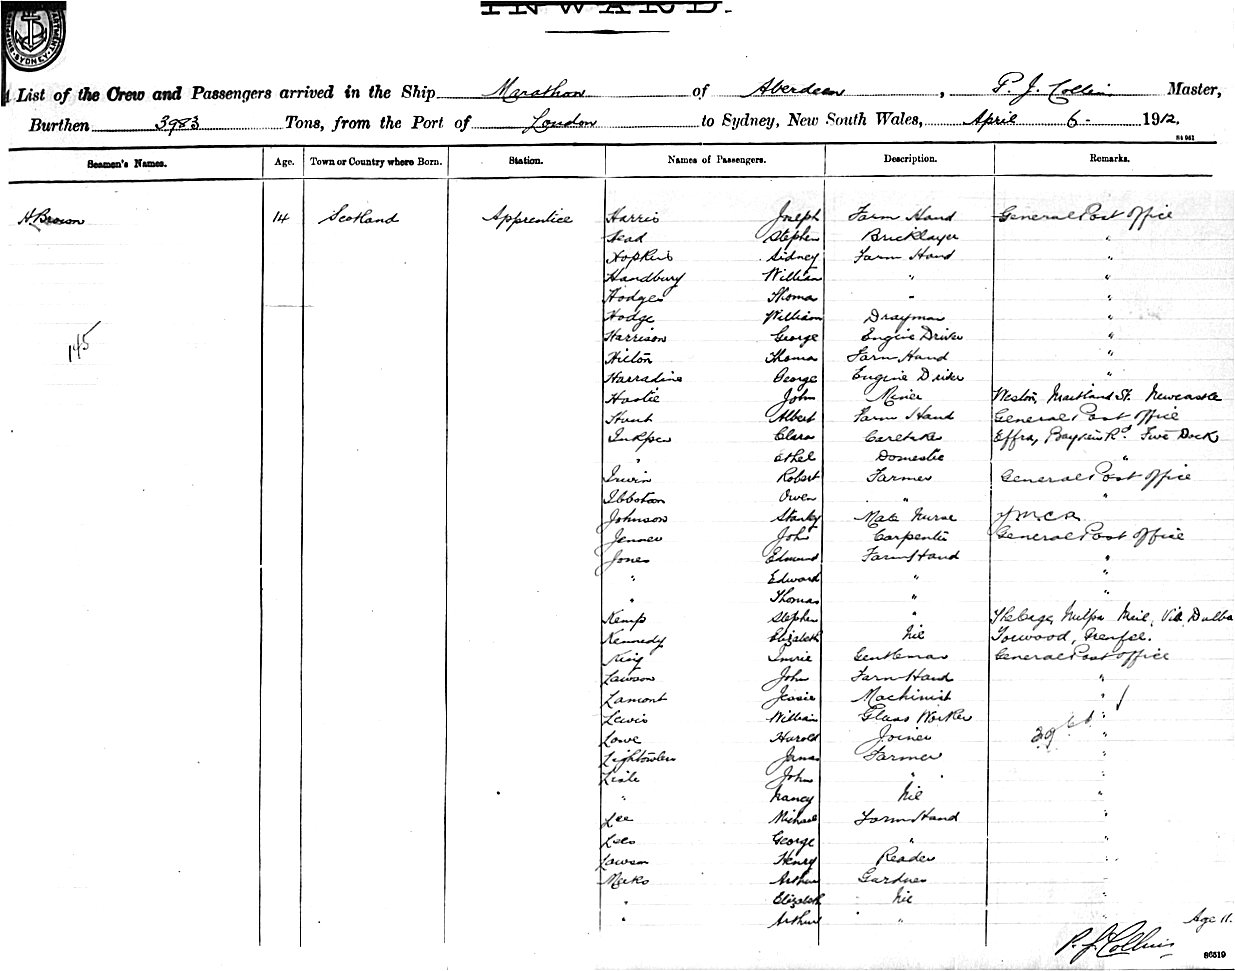 INWARD.
SYDNEY
List of the Crew and Passengers arrived in the Ship Marathon of Aberdeen, P. J. Collins Master,
Burthen 3983 Tons, from the Port of London to Sydney, New South Wales, April 6- 1912.
84 041
Seamen's Names. Age. Town or Country where Born. Station. Names of Passengers. Description. Remarks.
A Brown 14 Scotland Apprentice Harris Joseph Farm Hand General Post Office
Head Stephen Bricklayer "
Hopkins Sidney Farm Hand "
Handbury William " "
Hodges Thomas " "
Hodge William Drayman "
Harrison George Engine Driver "
Hilton Thomas Farm Hand "
Harradine George Engine Driver "
Hastie John Miner Weston, Maitland St. Newcastle
Hunt Albert Farm Hand General Post Office
Inkpen Clara Caretaker Effra, Rd. Five Dock
" Ethel Domestic "
Irwin Robert Farmer General Post Office
Ibbotson Owen " "
Johnson Stanley Male Nurse Y.M.C.A.
Jenner John Carpenter General Post Office
Jones Edmund Farm Hand "
" Edward " "
" Thomas " "
Kemp Stephen "
Kennedy Elizabeth Nil
King Imrie Gentleman General Post Office
Lawson John Farm Hand "
Lamont Jessie Machinist "
Lewis William Glass Worker "
Lowe Harold Joiner "
Lightowlers James Farmer "
Lisle John " "
" Nancy Nil "
Lee Michael Farm Hand "
Lees George " "
Lawson Henry Reader "
Meeks Arthur Gardner "
" Elizabeth Nil "
" Arthur " " Age 11.
145
39
P. J. Collins
86519